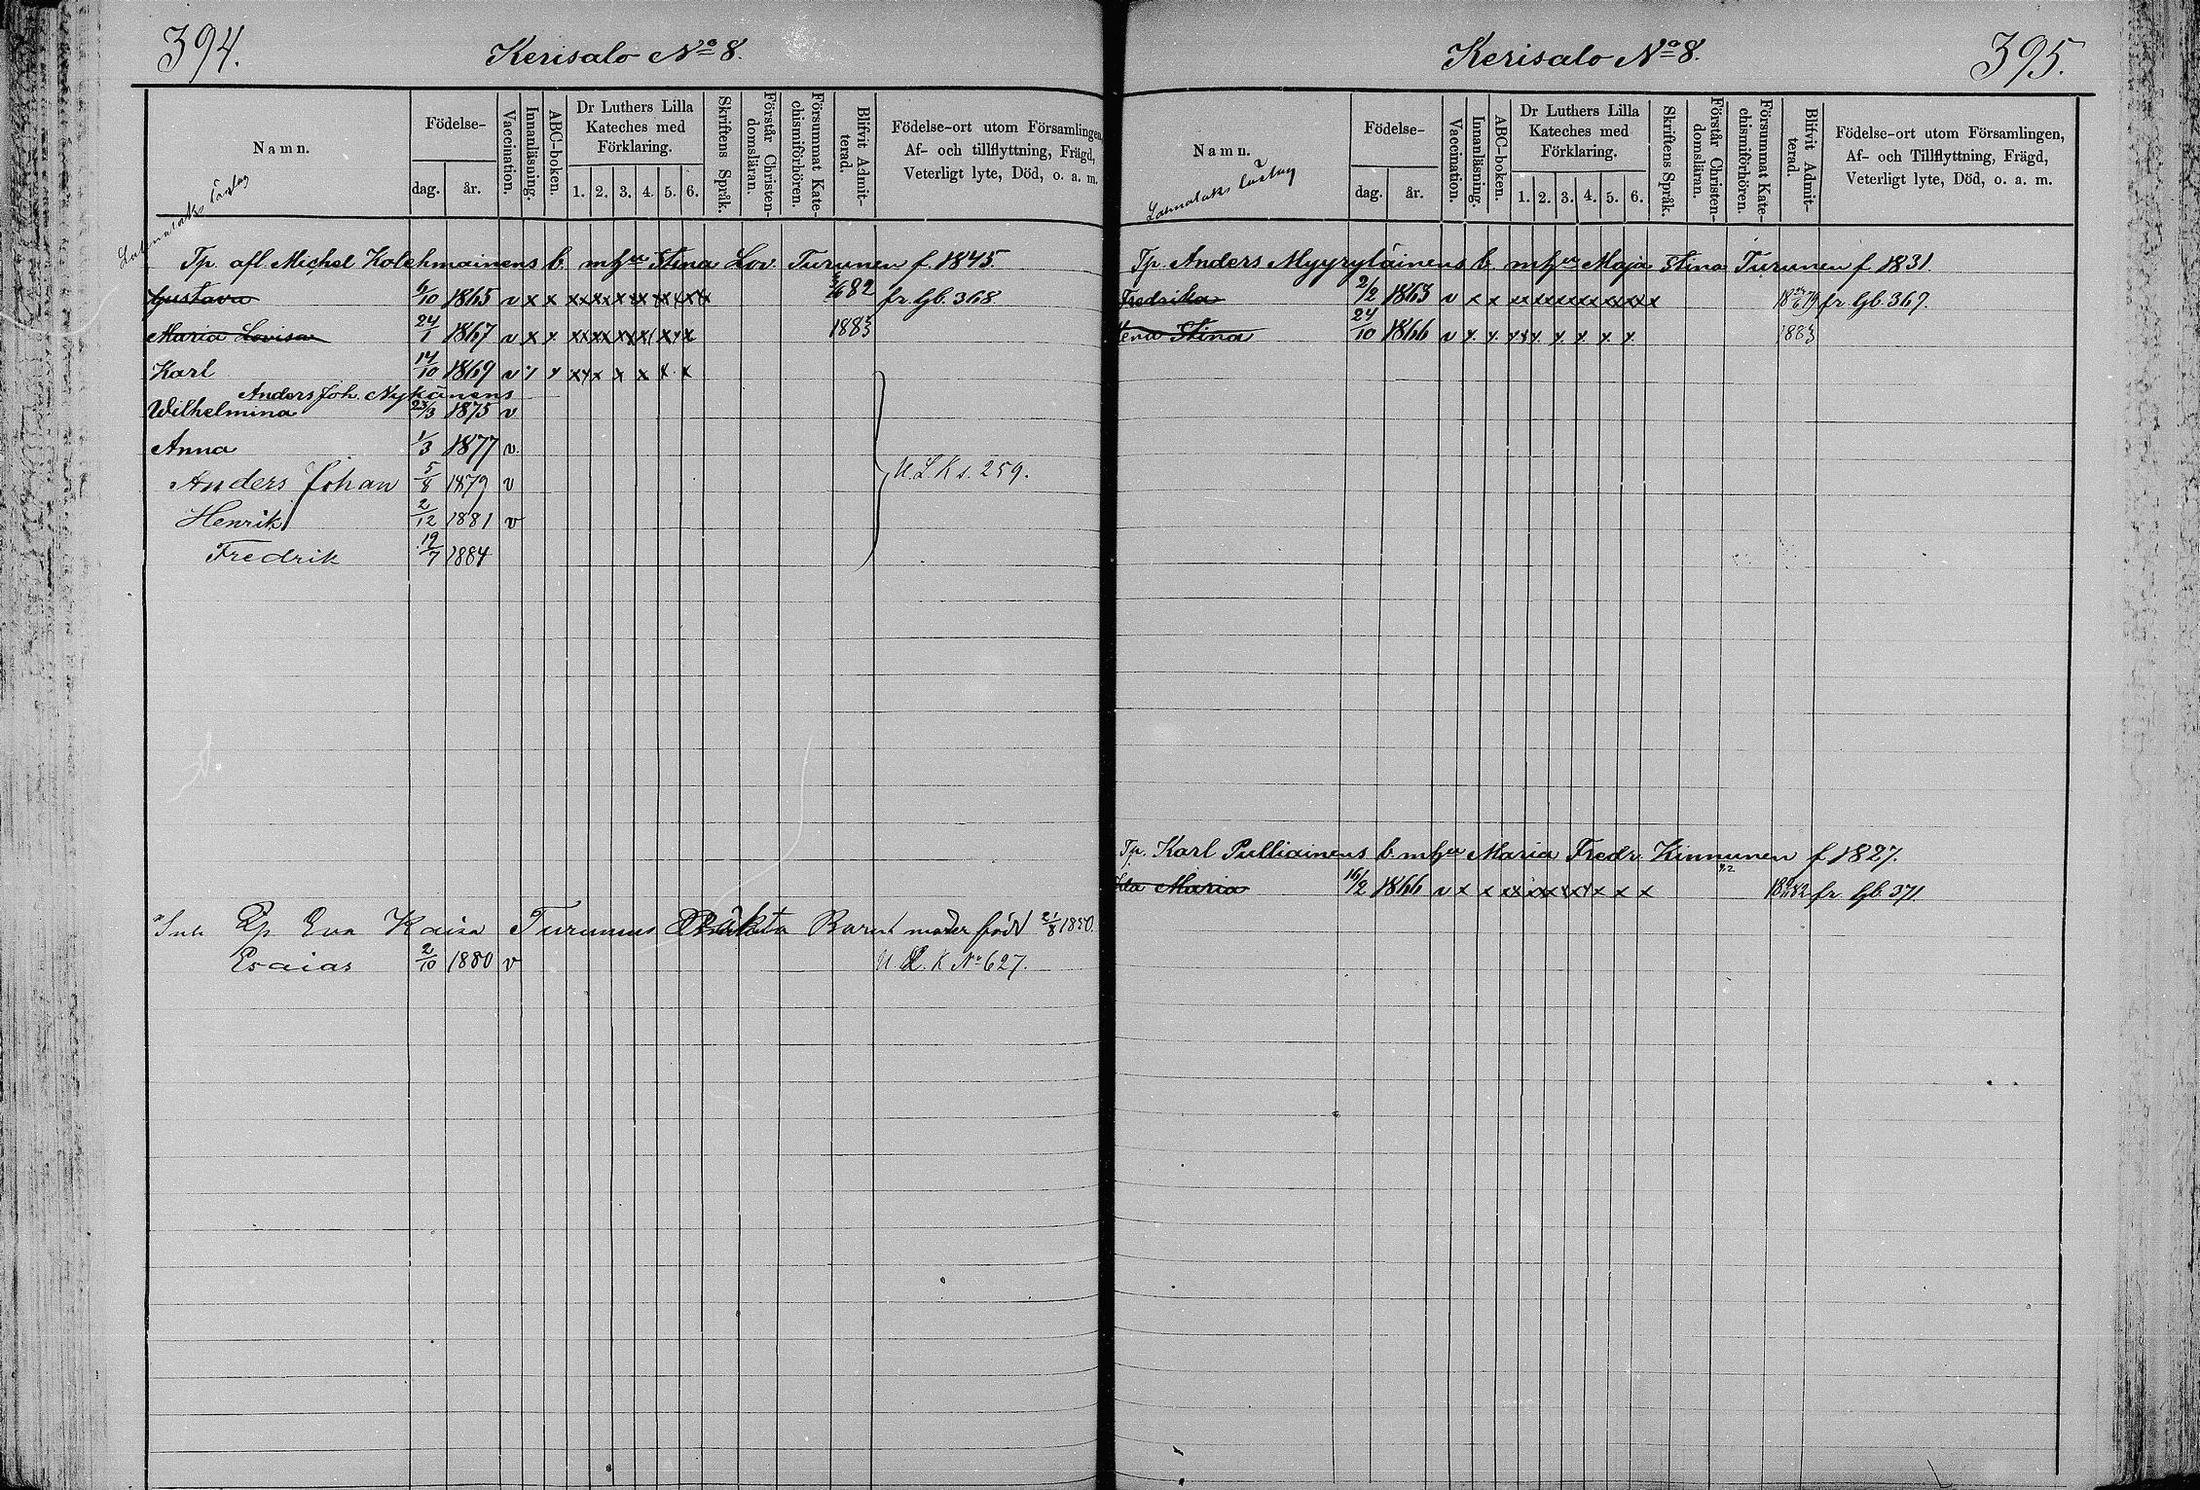 394.
Kerisalo No 8.
Namn.
Födelse-
dag.
år.
Vaccination.
Innanläsning.
ABC-boken.
Dr Luthers Lilla
Kateches med
Förklaring.
1. 2. 3. 4. 5. 6.
Skriftens Språk.
Förstår Christen-
domsläran.
Försummat Kate-
chismiförhören.
Blifvit Admit-
terad.
Födelse-ort utom Församlingen,
Af- och tillflyttning, Frägd,
Veterligt lyte, Död, o. a. m.
Tp. afl Michel Kolehmainens b. m hu Stina Lov. Turunen f. 1845.
Gustava 6/10 1865 v x x 82 fr. Gb. 368.
Maria Lovisa 24/1 1867 v x x 1883
Karl 14/10 1869 v
Anders Joh. Nykänens
Wilhelmina 23/3 1875 v
Anna 1/3 1877 v.
Anders Johan 5/8 1879 v
N. L. K s. 259.
Henrik 2/12 1881 v
Fredrik 19/7 1884
Inh Eva Kaisa Turunens Barn moder född 21/8 1850
Esaias 2/10 1880 v N. L. K No 627.
Kerisalo No 8.
395.
Namn.
Födelse-
dag.
år.
Vaccination.
Innanläsning.
ABC-boken.
Dr Luthers Lilla
Kateches med
Förklaring.
1. 2. 3. 4. 5. 6.
Skriftens Språk.
Förstår Christen-
domsläran.
Försummat Kate-
chismiförhören.
Blifvit Admit-
terad.
Födelse-ort utom Församlingen,
Af- och Tillflyttning, Frägd,
Veterligt lyte, Död, o. a. m.
Tp. Anders Myyryläinens b. m hu Maja Stina Turunen f. 1831.
Fredrika 2/2 1863 v x x fr. Gb. 369.
Stina 24/10 1866 v x x 1883
Tp. Karl Pulliainens b. m hu Maria Fredr. Kinnunen f. 1827.
Ida Maria 16/2 1866 v x x fr. Gb. 371.